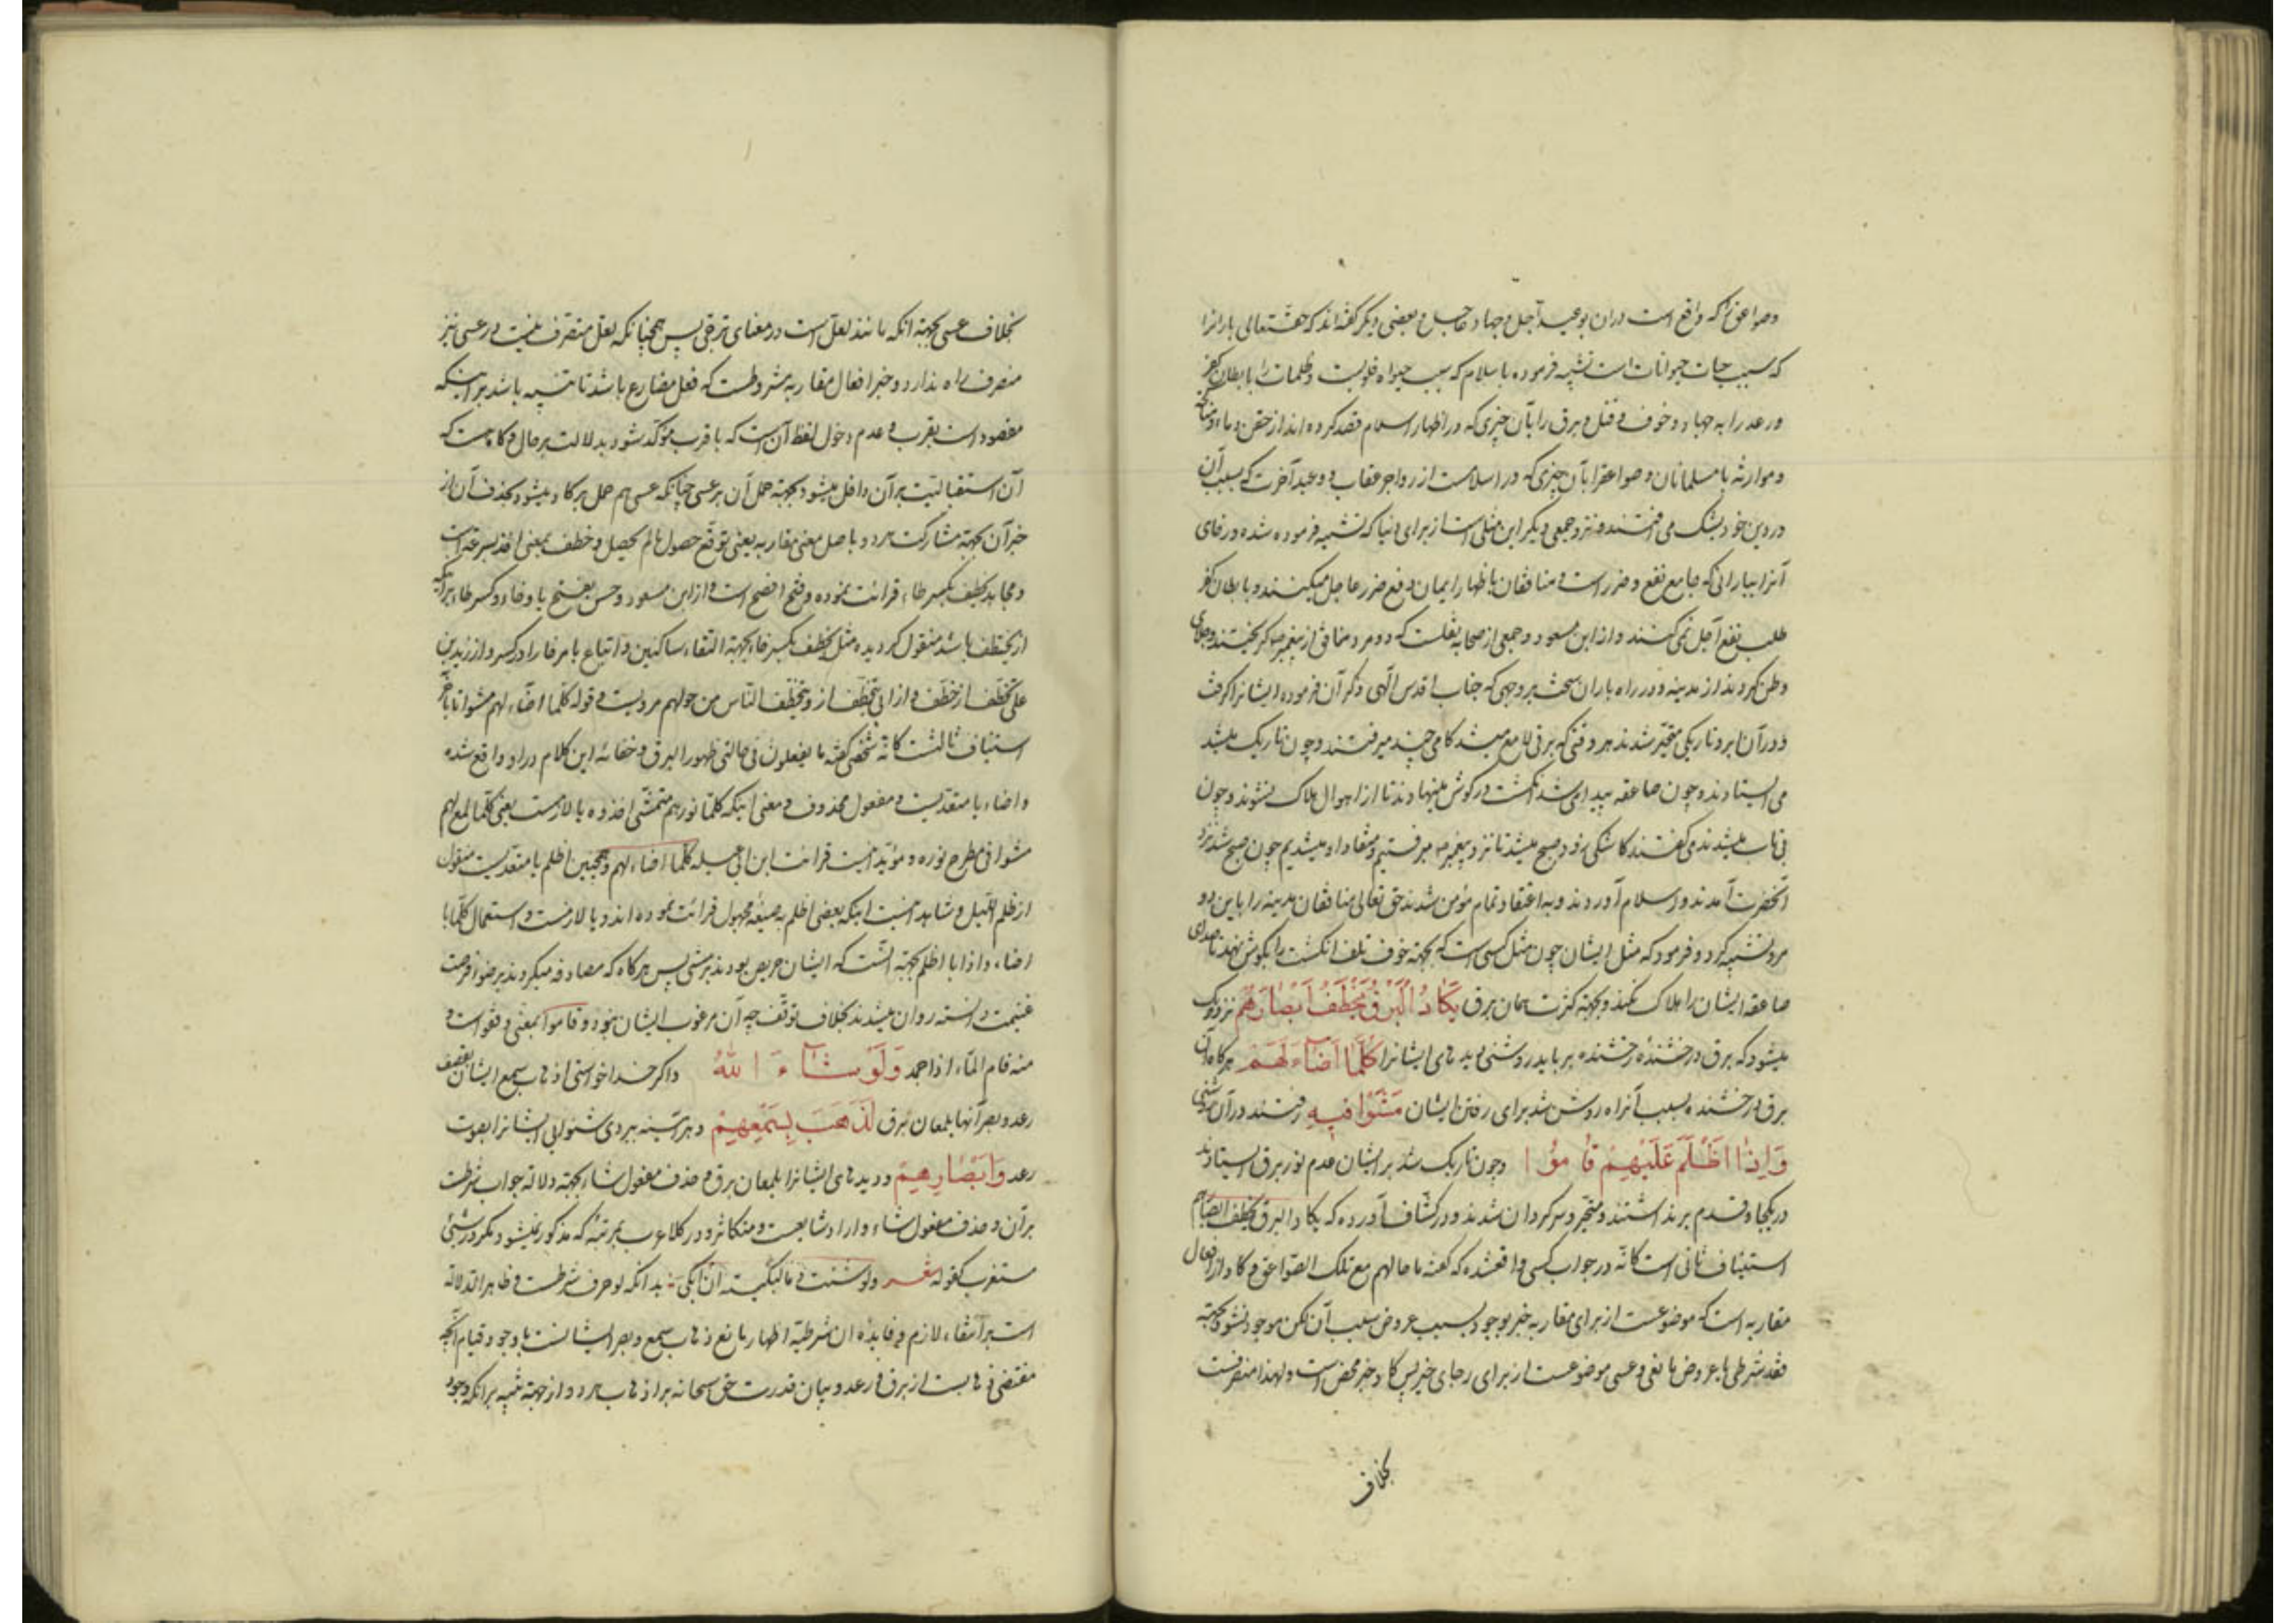 وصواعق را که واقع است در آن بوعید آجل و جهاد عاجل و بعضی دیکر کفته‌اند که حقتعالی بارانرا
که سبب حیات حیوانات است تشبیه فرموده باسلام که سبب حیوة قلوبست وظلمات را بابطان کفر
ورعد را به جهاد وخوف قتل وبرق را بآن چیزی که در اظهار اسلام قصد کرده‌اند از حقن دماء ومناکحه
وموارثه با مسلمانان وصواعقرا بآن چیزی که در اسلامست از زواجر عقاب ووعید آخرت که بسبب آن
در دین خود بشک می‌افتند ونزد جمعی دیکر این مثلی است از برای دنیا که تشبیه فرموده شده ورخای
آنرا ببارانی که جامع نفع وضرر است ومنافقان باظهار ایمان دفع ضرر عاجل میکنند وبابطان کفر
طلب نفع آجل نمی‌کنند واز ابن مسعود وجمعی از صحابه نقلست که دو مرد منافق از پیغمبر ص کریختند وجلای
وطن کردند از مدینه ودر راه باران سخت بر وجهی که جناب اقدس الهی ذکر آن فرموده ایشانرا کرفت
ودر آن ابر وتاریکی متحیر شدند هر وقتی که برقی لامع میشد کامی چند میرفتند وچون تاریک میشد
می‌ایستادند وچون صاعقه پیدا می‌شد انکشت در کوش مینهادند تا از اهوال هلاک نشوند وچون
بی‌تاب میشدند می‌کفتند کاشکی زود صبح میشد تا نزد پیغمبر ص میرفتیم ومنقاد او میشدیم چون صبح شد نزد
آنحضرت آمدند واسلام آوردند وبه اعتقاد تمام مؤمن شدند حق تعالی منافقان مدینه را باین دو
مرد تشبیه کرد وفرمود که مثل ایشان چون مثل کسی است که بجهة خوف تلف انکشت را بکوش نهند تا صدای
صاعقه ایشان را هلاک نکند وبجهة کثرت لمعان برق یَکَادُ الْبَرْقُ یَخْطَفُ اَبْصَارَهُمْ نزدیک
میشود که برق درخشندهٔ رخشنده برباید روشنی دیدهای ایشانرا کُلَّمَا اَضَاءَ لَهُمْ هر کاه آن
برق درخشنده بسبب آنراه روشن شد برای رفتن ایشان مَشَوْا فِیهِ رفتند در آن روشنی
وَاِذَا اَظْلَمَ عَلَیْهِمْ قَامُوا وچون تاریک شد بر ایشان عدم نور برق ایستادند
در یکجا وقدم برنداشتند ومتحیر وسرکردان شدند ودر کشاف آورده که یکاد البرق یخطف ابصارهم
استیناف ثانی است کانه در جواب کسی واقعشده که کفته ما حالهم مع تلک الصواعق وکاد از افعال
مقاربه است که موضوعست از برای مقاربه خبر بوجود بسبب عروض سبب آن لکن موجود نشود بجهة
فقد شرطی یا عروض مانعی وعسی موضوعست از برای رجای خبر پس کاد خبر محض است ولهذا منصرفست
بخلاف
بخلاف عسی بجهة انکه مانند لعل است در معنای ترجی پس همچنانکه لعل متصرف نیست در عسی نیز
منصرف راه ندارد وخبر افعال مقاربه مشروطست که فعل مضارع باشد تا تنبیه باشد بر اینکه
مقصود است بقرب وعدم دخول لفظ آن است که با قرب مؤکد شود بدلالت بر حال وکاهست که
آن استقبالیت بر آن داخل میشود بجهة حمل آن بر عسی چنانکه عسی هم حمل بر کاد میشود بحذف آن از
خبر آن بجهة مشارکت هر دو باصل معنی مقاربه یعنی توقع حصول ما لم یحصل وخطف بمعنی اخذ بسرعة است
ومجاهد یخطف بکسر طاء قرائت نموده وفتح افصح است واز ابن مسعود وحسن بفتح یا وخاء وکسر طاء بر آنکه
از یختطف باشد منقول کردیده مثل یخطف بکسر خاء بجهة التقاء ساکنین واتباع یا مر خا را در کسر واز زیدبن
علی یخطف از خطف واز ابی یتخطف از ویتخطف الناس من حولهم مرویست وقوله کلما اضاء لهم مشوا تا بآخر
استیناف ثالثست کانه شخصی کفته ما یفعلون فی حالتی ظهور البرق وخفائه این کلام در او واقع شده
واضاء یا متعدیست ومفعول محذوف ومعنی اینکه کلما نور لهم متمشی اخذوه یا لازمست یعنی کلما لمع لهم
مشوا فی مطرح نوره ومؤید اینست قرائت ابن ابی عبله کلما اضاء لهم وهمچنین اظلم یا متعدیست منقول
از ظلم اللیل وشاهد اینست اینکه بعضی اظلم به صیغهٔ مجهول قرائت نموده‌اند ویا لازمست واستعمال کلما با
اضاء واذا با اظلم بجهة آنست که ایشان حریص بودند بر مشی پس هر کاه که مصادفه میکردند بر ضوء فرصت
غنیمت دانسته روان میشدند بخلاف توقف چه آن مرغوب ایشان نبود وقاموا بمعنی وقفوا است و
منه قام الماء اذا جمد وَلَوْ شَاءَ اللهُ واکر خدا خواستی اذهاب سمع ایشان بقصف
رعد وبصر آنها بلمعان برق لَذَهَبَ بِسَمْعِهِمْ وهر آینه ببردی شنوایی ایشانرا بصوت
رعد وَاَبْصَارِهِمْ ودیدهای ایشانرا بلمعان برق وحذف مفعول شاء بجهة دلالة جواب شرطست
بر آن وحذف مفعول شاء واراد شایعست ومتکاثر ودر کلام عرب بمرتبهٔ که مذکور نمیشود مکر در شیئی
مستغرب کقوله شعر ولو شئت ان ابکی دما لبکیته بدانکه لو حرف شرطست وظاهرا لدلالة
است بر انتفاء لازم وفایدهٔ این شرطیه اظهار مانع ذهاب سمع وبصر ایشانست با وجود قیام آنچه
مقتضی ذهابست از برق ورعد وبیان قدرت حق سبحانه بر اذهاب هر دو از جهة تنبیه بر انکه وجود